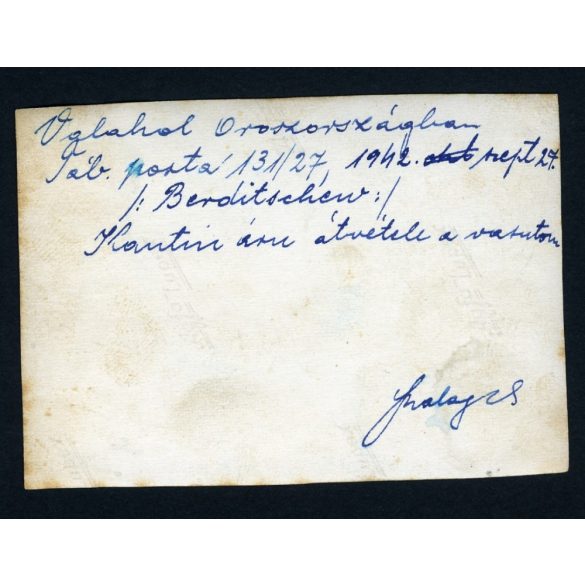 Valahol Oroszországban
Táb. posta 131/27, 1942. sept 27.
/: Berditschew :/
Kantin áru átvétele a vasuton